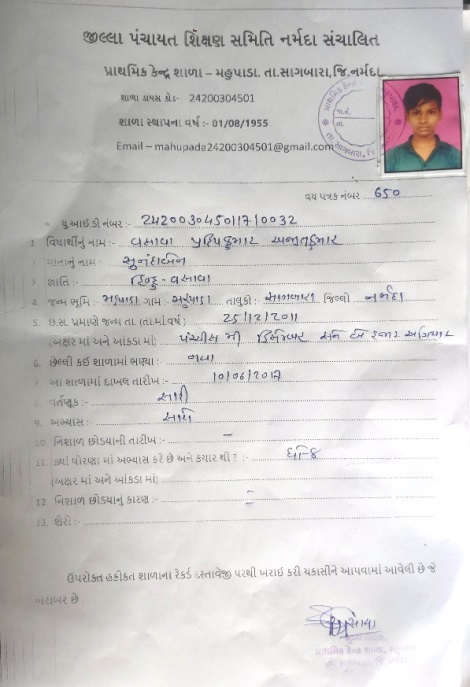 જીલ્લા પંચાયત શિક્ષણ સમિતિ નર્મદા સંચાલિત
પ્રાથમિક કેન્દ્ર શાળા – મહુપાડા. તા.સાગબારા,જિ.નર્મદા.
શાળા ડાયસ કોડ- 24200304501
શાળા સ્થાપના વર્ષ :- 01/08/1955
Email – mahupada24200304501@gmail.com
વય પત્રક નંબર 650
યુ આઈ ડી નંબર :- 242003045011710032
1. વિદ્યાર્થીનું નામ :- વસાવા પ્રદિપકુમાર અજીતકુમાર
2. માતાનું નામ :- સુનંદાબેન
3. જ્ઞાતિ :- હિન્દુ - વસાવા
4. જન્મ ભૂમિ :- મહુપાડા ગામ :- મહુપાડા તાલુકો :- સાગબારા જિલ્લો નર્મદા
5. છ.સ. પ્રમાણે જન્મ તા. (તા.માં વર્ષ) 25/12/2011
(અક્ષર માં અને આંકડા માં) પચ્ચીસ મી ડિસેમ્બર સને બે હજાર અગિયાર
6. છેલ્લી કઈ શાળામાં ભણ્યા :- નવા
7. આ શાળામાં દાખલ તારીખ :- 10/06/2017
8. વર્તણૂક :- સારી
9. અભ્યાસ :- સારો
10. નિશાળ છોડયાની તારીખ :- –
11. ક્યાં ધોરણ માં અભ્યાસ કરે છે અને કયાર થી ? :- ધો-8
(અક્ષર માં અને આંકડા માં)
12. નિશાળ છોડયાનું કારણ :- –
13. શેરો :-
ઉપરોક્ત હકીકત શાળાના રેકર્ડ દસ્તાવેજી પરથી ખરાઈ કરી ચકાસીને આપવામાં આવેલી છે જે
બરાબર છે .
પ્રાથમિક કેન્દ્ર શાળા, મહુપાડા,